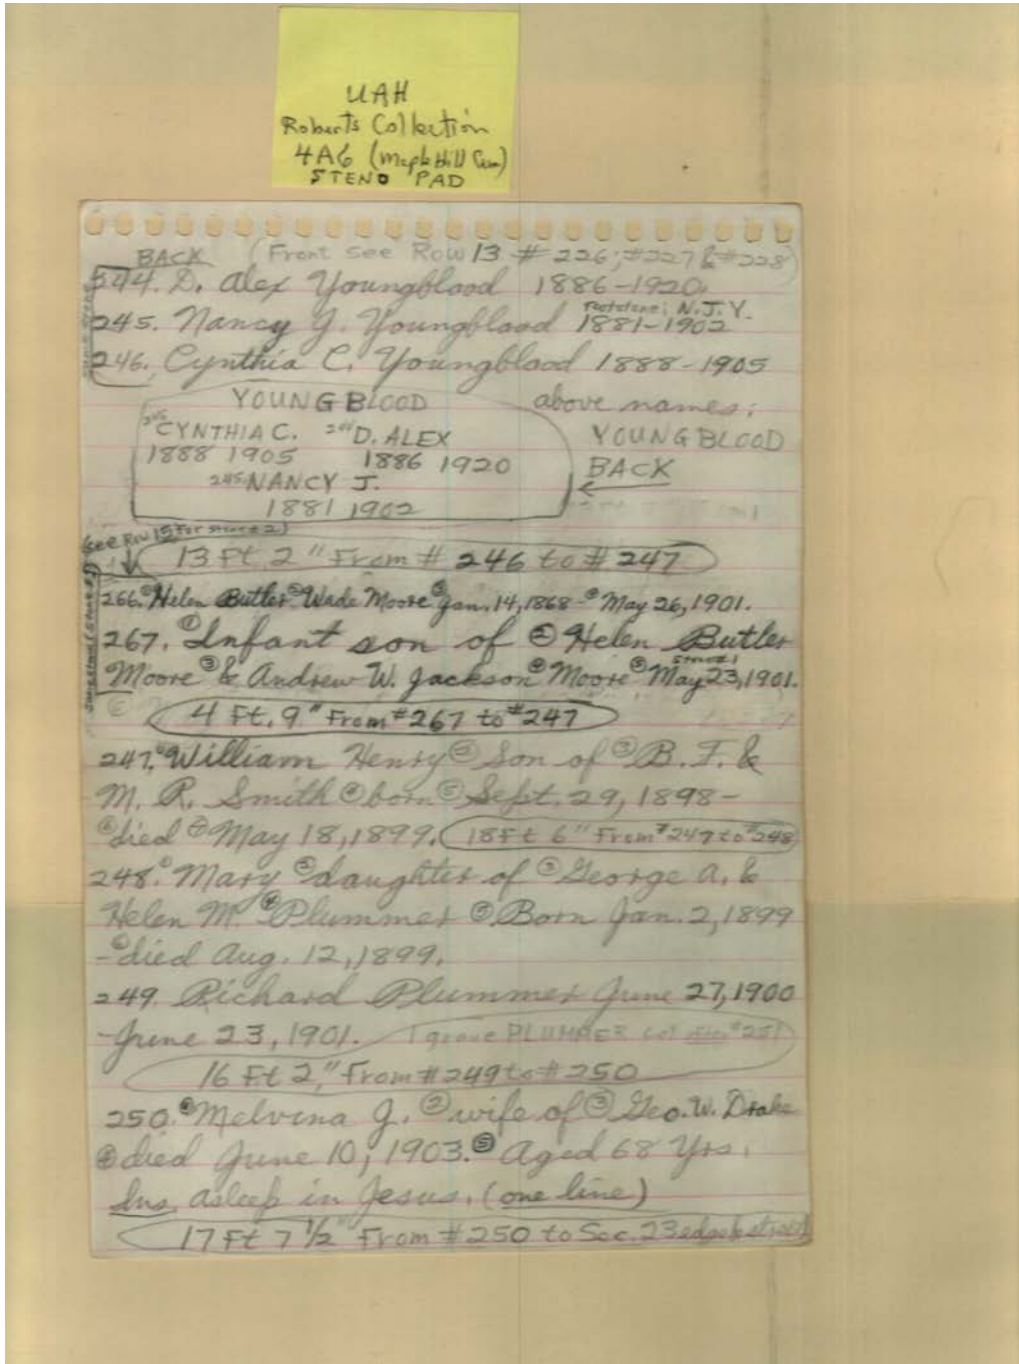 UAH
Roberts Collection
4A6 (Maple Hill Cem)
STENO PAD
BACK (Front see Row 13 # 226, #227 & #228)
244. D. Alex Youngblood 1886-1920.
footstone: N.J.Y.
245. Nancy J. Youngblood 1881-1902
246. Cynthia C. Youngblood 1888-1905
YOUNGBLOOD above names:
246 CYNTHIA C. 244 D. ALEX YOUNGBLOOD
1888 1905 1886 1920 BACK
245 NANCY J.
1881 1902
(see Row 15 For stone 2)
13 Ft 2" From # 246 to # 247
266. ① Helen Butler ② Wade Moore ③ Jan. 14, 1868 - ④ May 26, 1901.
267. ① Infant son of ② Helen Butler
Moore ③ & Andrew W. Jackson ④ Moore ⑤ May 23, 1901.
4 Ft. 9" From #267 to #247
247. ① William Henry ② Son of ③ B. F. &
M. R. Smith ④ born ⑤ Sept. 29, 1898 -
⑥ died ⑦ May 18, 1899. 18 Ft 6" From #247 to #248
248. ① Mary ② daughter of ③ George A. &
Helen M. ④ Plummer ⑤ Born Jan. 2, 1899
- ⑥ died Aug. 12, 1899.
249. Richard Plummer June 27, 1900
- June 23, 1901. 1 grave PLUMMER lot #251
16 Ft 2" From # 249 to # 250
250. ① Melvina J. ② wife of ③ Geo. W. Drake
④ died June 10, 1903. ⑤ Aged 68 Yrs.
Ins. asleep in Jesus. (one line)
17 Ft 7 1/2" From # 250 to Sec. 23 edge & street